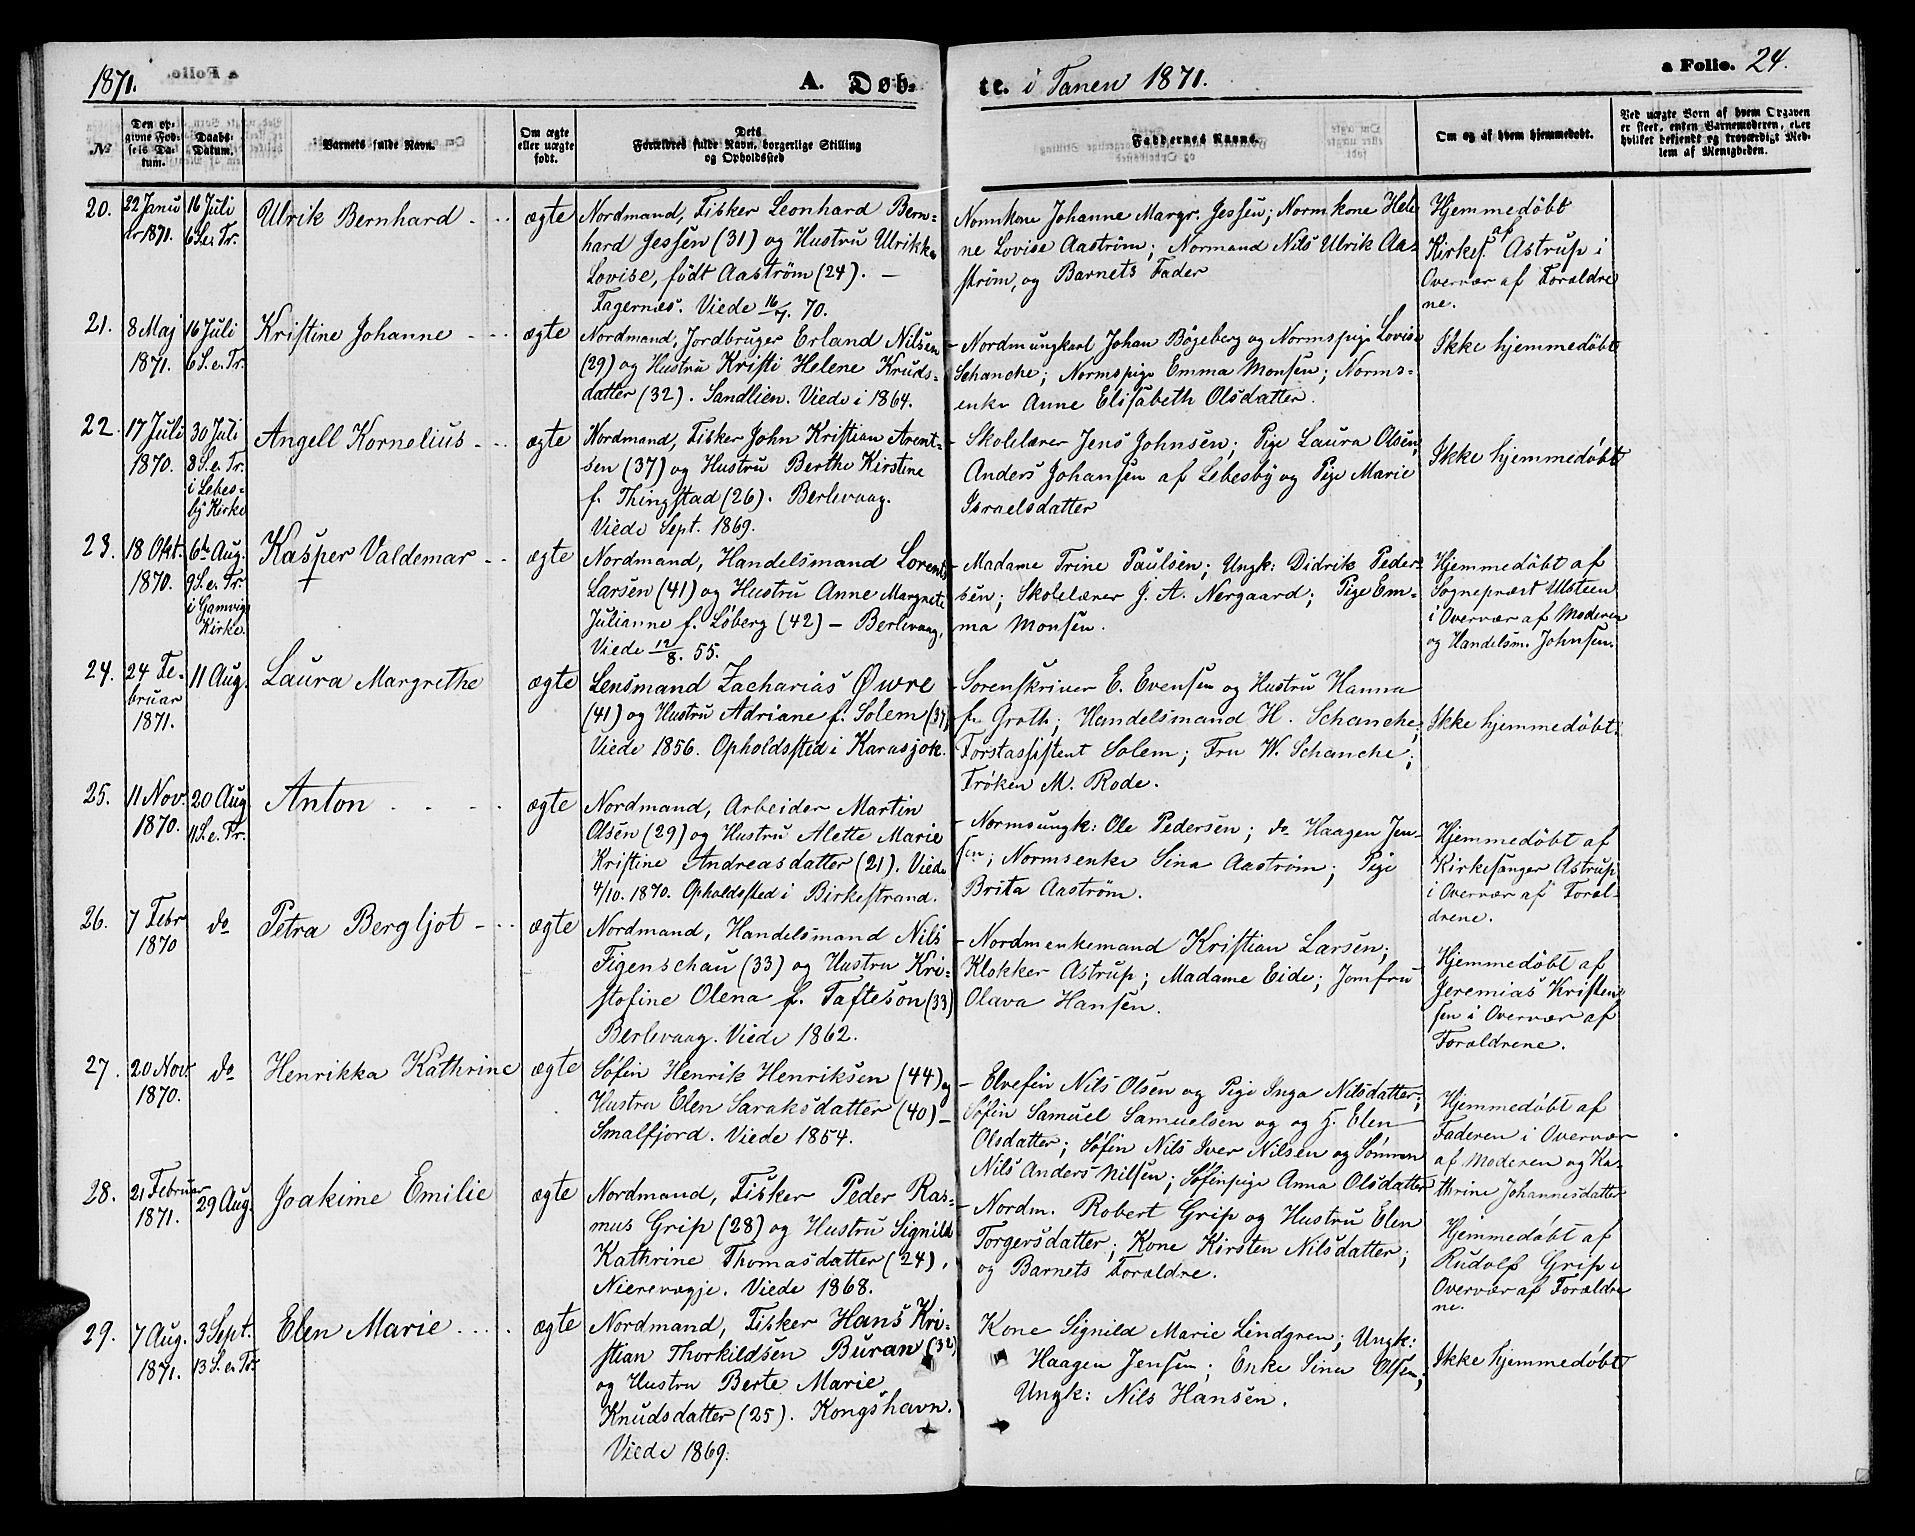 1871.
A. Døb-
te. i Tanen 1871.
a Folio. 24.
№
Den op-
givne Fød-
sels Da-
tum.
Daabs-
Datum.
Barnets fulde Navn.
Om ægte
eller uægte
født.
Dets
Forældres fulde Navn, borgerlige Stilling
og Opholdssted
Faddernes Navne.
Om og af hvem hjemmedøbt.
Ved uægte Børn af hvem Opgaven
er skeet, enten Barnemoderen, eller
hvilket bekjendt og troværdigt Med-
lem af Menigheden.
20.
22 Janu
ar 1871.
16 Juli
6 S. e. Tr.
Ulrik Bernhard
ægte
Nordmand, Fisker Leonhard Bern-
hard Jessen (31) og Hustru Ulrikke
Lovise, født Aaström (24). —
Fagernæs. Viede 16/7. 70.
Normkone Johanne Margr. Jessen; Normkone Hele
ne Lovise Aaström; Normand Nils Ulrik Aa-
ström, og Barnets Fader
Hjemmedøbt
af
Kirkes. Astrup i
Overvær af Forældre
ne.
21.
8 Maj
1871.
16 Juli
6 S. e. Tr.
Kristine Johanne
ægte
Nordmand, Jordbruger Erland Nilsen
(29) og Hustru Kristi Helene Knuds-
datter (32). Sandlien. Viede i 1864.
- Nordmungkarl Johan Bögeberg og Normspige Lovise
Schanche; Normspige Emma Monsen; Norms-
enke Anne Elisabeth Olsdatter.
Ikke hjemmedøbt
22.
17 Juli
1870.
30 Juli
8 S. e. Tr.
i Lebes-
by Kirke
Angell Kornelius
ægte
Nordmand, Fisker John Kristian Arent-
sen (37) og Hustru Berthe Kirstine
f. Thingstad (26). Berlevaag.
Viede Sept. 1869.
- Skolelærer Jens Johnsen; Pige Laura Olsen,
Anders Johansen af Lebesby og Pige Marie
Israelsdatter
Ikke hjemmedøbt
23.
18 Okt.
1870.
6te Aug.
9 S. e. Tr.
i Gamvig
Kirke.
Kasper Valdemar
+
ægte
Nordmand, Handelsmand Lorents
Larsen (41) og Hustru Anne Margrete
Julianne f. Løberg (42) — Berlevaag,
Viede 12/8. 55.
- Madame Trine Paulsen; Ungk: Didrik Peder-
sen; Skolelærer J. A. Nergaard; Pige Em-
ma Monsen.
Hjemmedøbt af
Sognepræst Ulsteen
i Overvær af Moderen
og Handelsm. Johnsen.
24.
24 Fe-
bruar
1871.
11 Aug.
Laura Margrethe
ægte
Lensmand Zacharias Øwre
(41) og Hustru Adriane f. Solem (37)
Viede 1856. Opholdssted i Karasjok.
- Sorenskriver E. Evensen og Hustru Hanna
f. Groth; Handelsmand H. Schanche;
Forstassistent Solem; Fru W. Schanche;
Frøken M. Rode.
Ikke hjemmedøbt.
25.
11 Nov.
1870.
20 Aug
11 S. e. Tr.
Anton
ægte
Nordmand, Arbeider Martin
Olsen (29) og Hustru Alette Marie
Kristine Andreasdatter (21). Viede
4/10. 1870. Opholdssted i Birkestrand.
- Normsungk: Ole Pedersen; do Haagen Jen-
sen; Normsenke Sina Aaström; Pige
Brita Aaström.
Hjemmedøbt af
Kirkesanger Astrup
i Overvær af Foræl-
drene.
26.
7 Febr
1870
do
Petra Bergljot
ægte
Nordmand, Handelsmand Nils
Figenschau (33) og Hustru Kri-
stofine Olena f. Tafteson (33)
Berlevaag. Viede 1862.
- Nordmenkemand Kristian Larsen;
Klokker Astrup; Madame Eide; Jomfru
Olava Hansen.
Hjemmedøbt af
Jeremias Kristen-
sen i Overvær af
Forældrene.
27.
20 Nov.
1870.
do
Henrikka Kathrine
ægte
Søfin Henrik Henriksen (44) og
Hustru Elen Saraksdatter (40) —
Smalfjord. Viede 1854.
- Elvefin Nils Olsen og Pige Inga Nilsdatter;
Søfin Samuel Samuelsen og og H. Elen
Olsdatter; Søfin Nils Iver Nilsen og Sønnen
Nils Anders Nilsen; Søfinpige Anna Olsdatter
Hjemmedøbt af
Faderen i Overvær
af Moderen og Ka-
thrine Johannesdatter
28.
21 Februar
1871.
29 Aug.
Joakime Emilie
ægte
Nordmand, Fisker Peder Ras-
mus Grip (28) og Hustru Signild
Kathrine Thomasdatter (24),
Nierevægje. Viede 1868.
- Nordm. Robert Grip og Hustru Elen
Torgersdatter; Kone Kirsten Nilsdatter;
og Barnets Forældre.
Hjemmedøbt af
Rudolf Grip i
Overvær af Forældre
ne.
29.
7 Aug.
1871.
3 Sept.
13 S. e. Tr.
Elen Marie
ægte
Nordmand, Fisker Hans Kri-
stian Thorkildsen Buran (32)
og Hustru Berte Marie
Knudsdatter (25). Kongshavn.
Viede 1869.
Kone Signild Marie Lindgren; Ungk:
Haagen Jensen; Enke Sina Olsen;
Ungk: Nils Hansen.
Ikke hjemmedøbt